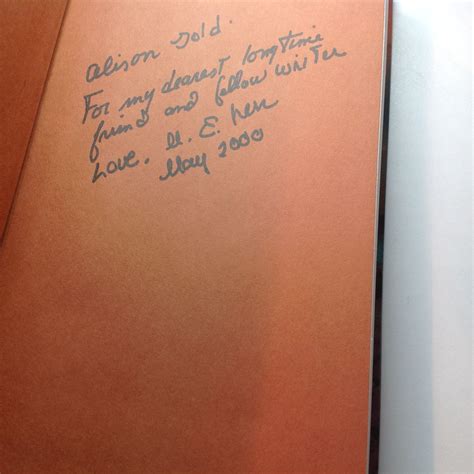 Alison Gold.
For my dearest longtime
friend and fellow writer
Love. M. E. Kerr
May 2000